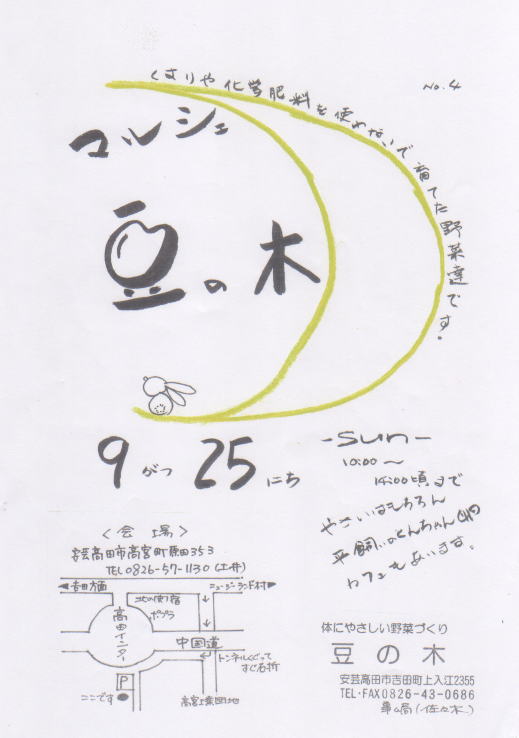 No.4
くすりや化学肥料を使わないで育てた野菜達です.
マルシェ
豆の木
9がつ25にち
-sun-
10:00〜
14:00頃まで
やさいはもちろん
カフェもあります.
〈会場〉
安芸高田市高宮町原田353
TEL0826-57-1130(土井)
吉田方面
ニュージーランド村
北の灯宿
ポプラ
高田インター
中国道
トンネルくぐって
すぐ右折
P
ここです
高宮工業団地
体にやさしい野菜づくり
豆の木
安芸高田市吉田町上入江2355
TEL・FAX0826-43-0686
事ム局(佐々木)